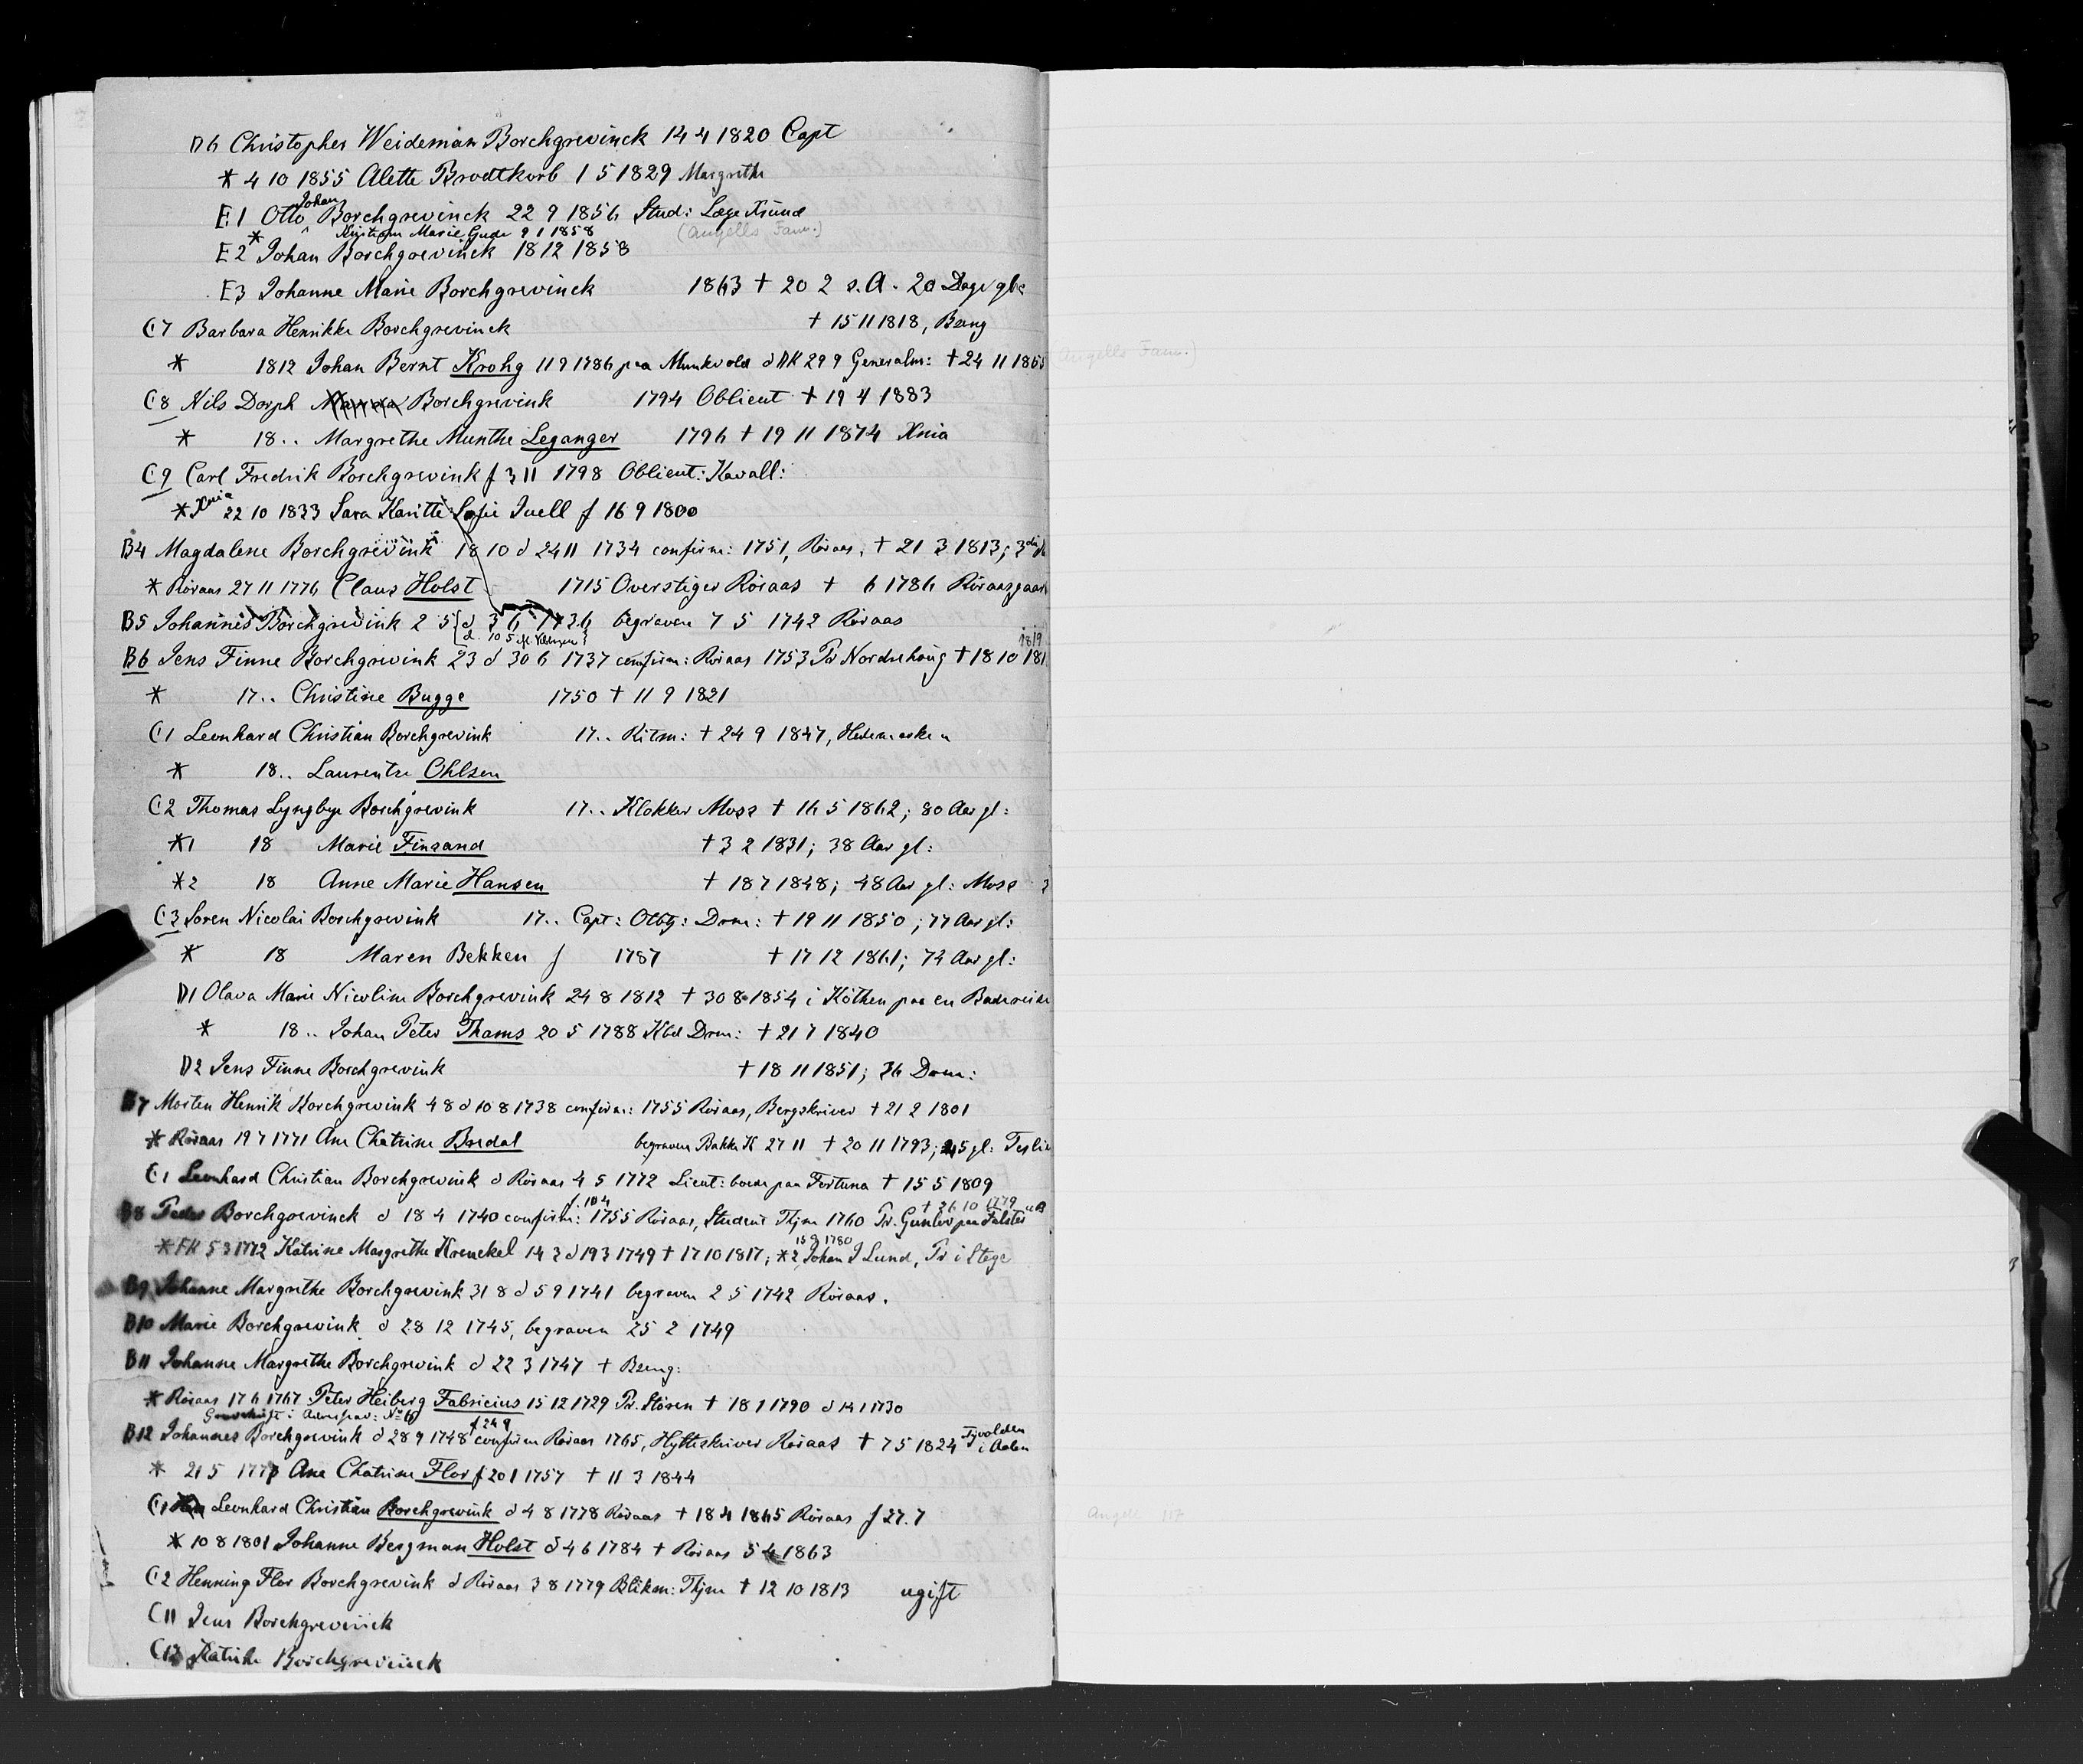 D6 Christopher Weideman Borchgrevinck 14 4 1820 Capt
* 4 10 1855 Alette Brodtkorb 1 5 1829 Margrethe
Johan
E1 Otto Borchgrevinck 22 9 1856 Stud: Læge Xsund
* Marie Gude 9 1 1858 (Angells Fam.)
E2 Johan Borchgrevinck 18 12 1858
E3 Johanne Marie Borchgrevinck 1863 + 20 2 s.A. 20 Dage gl:
C7 Barbara Henrikke Borchgrevinck + 15 11 1818, Bang
* 1812 Johan Bernt Krohg 11 9 1786 paa Munkvold d DK 29 9 Generalm: + 24 11 1865
C8 Nils Dorph Borchgrevink 1794 Oblieut + 19 4 1883
* 18.. Margrethe Munthe Leganger 1796 + 19 11 1874 Xnia
C9 Carl Fredrik Borchgrevink f 3 11 1798 Oblieut: Kavall:
* Xnia 22 10 1833 Sara Karitte Sofie Juell f 16 9 1800
B4 Magdalene Borchgrevink 18 10 d 24 11 1734 confirm: 1751, Röraas, + 21 3 1813;
* Röraas 27 11 1776 Claus Holst 1715 Overstiger Röraas + 6 1786 Röraasgaard
B5 Johannes Borchgrevink 2 5 d 3 6 1736 begraven 7 5 1742 Röraas
1819
B6 Jens Finne Borchgrevink 23 d 30 6 1737 confirm: Röraas 1753 Pr Nordrehoug + 18 10 181
* 17.. Christine Bugge 1750 + 11 9 1821
C1 Leonhard Christian Borchgrevink 17.. Ritm: + 24 9 1847, Hedemarken
* 18.. Laurentze Ohlsen
C2 Thomas Lyngbye Borchgrevink 17.. Klokker Moss + 16 5 1862; 80 Aar gl:
*1 18 Marie Finsand + 3 2 1831; 38 Aar gl:
*2 18 Anne Marie Hansen + 18 7 1848; 48 Aar gl: Moss
C3 Soren Nicolai Borchgrevink 17.. Capt: Olbg: Drm: + 19 11 1850; 77 Aar gl:
* 18 Maren Bekken f 1787 + 17 12 1861; 74 Aar gl:
D1 Olava Marie Nicoline Borchgrevink 24 8 1812 + 30 8 1854 i Köthen paa en Badereise
* 18.. Johan Peter Thams 20 5 1788 Kbd Drm: + 21 7 1840
D2 Jens Finne Borchgrevink + 18 11 1851; 36 Drm:
B7 Morten Henrik Borchgrevink 4 8 d 10 8 1738 confirm: 1755 Röraas, Bergskriver + 21 2 1801
* Röraas 19 7 1771 Ane Chatrine Bredal begraven Bakke K 27 11 + 20 11 1793; 45 gl:
C1 Leonhard Christian Borchgrevink d Röraas 4 5 1772 Lieut: boede paa Fortuna + 15 5 1809
f. 10 4 + 26 10 1779
B8 Peder Borchgrevinck d 18 4 1740 confirm: 1755 Röraas, Student Thjm 1760 Pr. Gunlev paa Falster
15 9 1780
* FK 5 3 1772 Katrine Margrethe Krenckel 14 3 d 19 3 1749 + 17 10 1817; *2 Johan J Lund, Pr i Stege
B9 Johanne Margrethe Borchgrevink 31 8 d 5 9 1741 begraven 2 5 1742 Röraas.
B10 Marie Borchgrevink d 28 12 1745, begraven 25 2 1749
B11 Johanne Margrethe Borchgrevink d 22 3 1747 + Bang:
* Röraas 17 6 1767 Peter Heiberg Fabricius 15 12 1729 Pr. Stören + 18 1 1790 d 14 1 1730
Gravskrift i
f 24 9
B12 Johannes Borchgrevink d 28 9 1748 confirm Röraas 1765, Hytteskriver Röraas + 7 5 1824 Tyvolden i Aalen
* 21 5 177 Ane Chatrine Flor f 20 1 1757 + 11 3 1844
C1 Leonhard Christian Borchgrevink d 4 8 1778 Röraas + 18 4 1865 Röraas f 27.7
* 10 8 1801 Johanne Bergman Holst d 4 6 1784 + Röraas 5 4 1863
C2 Henning Flor Borchgrevink d Röraas 3 8 1779 Blikm: Thjm + 12 10 1813 ugift
C11 Jens Borchgrevinck
C12 Katrine Borchgrevinck